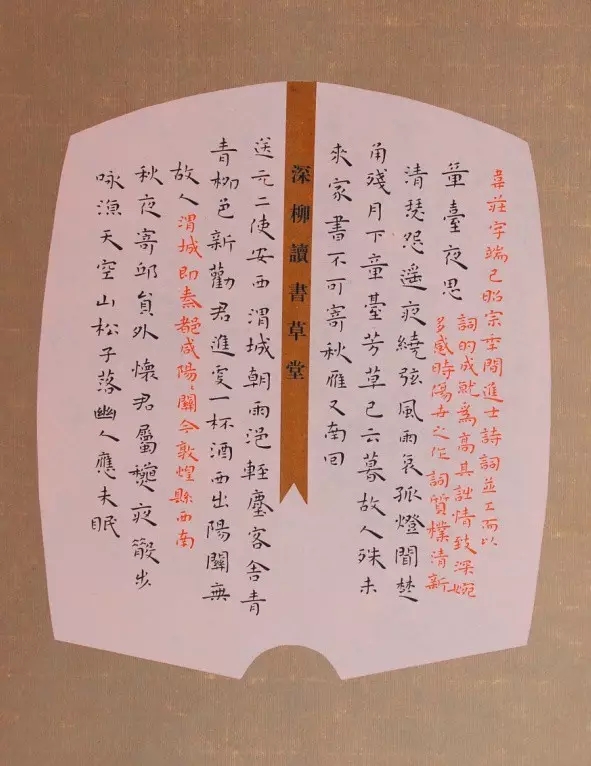 韋莊字端己昭宗年間進士詩詞並工而以
章臺夜思
詞的成就爲高其詩情致深婉
多感時傷世之作詞質樸清新
清瑟怨遙夜繞弦風雨哀孤燈聞楚
角殘月下章臺芳草已云暮故人殊未
來家書不可寄秋雁又南回
深柳讀書草堂
送元二使安西渭城朝雨浥輕塵客舍青
青柳色新勸君進更一杯酒西出陽關無
故人渭城即秦都咸陽關今敦煌縣西南
秋夜寄邱員外懷君屬穐夜散步
咏涼天空山松子落幽人應未眠